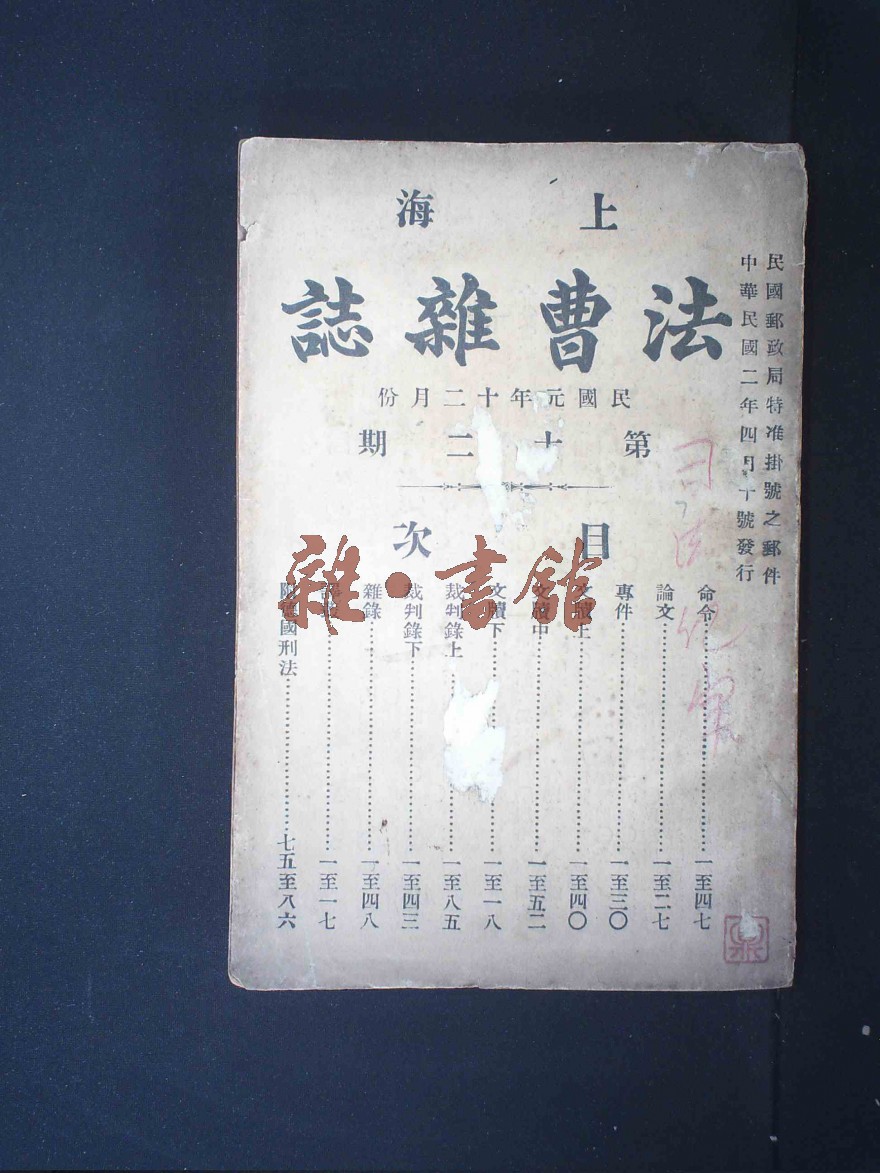 民國郵政局特准掛號之郵件
中華民國二年四月十號發行
上海
法曹雜誌
民國元年十二月份
第十二期
目次
命令 一至四七
論文 一至二七
專件 一至三〇
文牘上 一至四〇
文牘中 一至五二
文牘下 一至一八
裁判錄上 一至八五
裁判錄下 一至四三
雜錄 一至四八
一至一七
附德國刑法 七五至八六
雜·書館